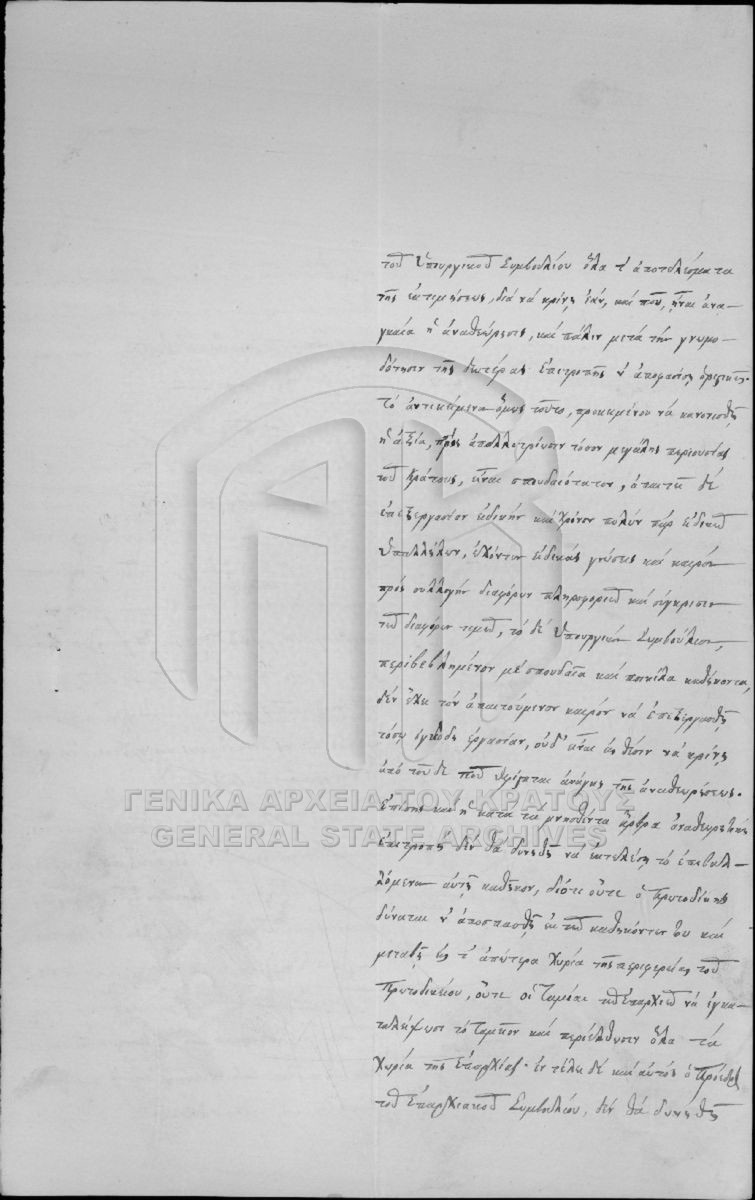 τοῦ Ὑπουργικοῦ Συμβουλίου ὅλα τ' ἀποτελέσματα
τῆς ἐκτιμήσεως, διά νά κρίνῃ ἐάν, καί ποῦ, ἦναι ἀνα-
γκαία ἡ ἀναθεώρησις, καί πάλιν μετά τήν γνωμο-
δότησιν τῆς δευτέρας ἐπιτροπῆς ν' ἀποφασίσῃ ὁριστικῶς.
τό ἀντικείμενον ὅμως τοῦτο, προκειμένου νά κανονισθῇ
ἡ ἀξία, πρός ἀπαλλοτρίωσιν τόσον μεγάλης περιουσίας
τοῦ Κράτους, εἶναι σπουδαιότατον, ἀπαιτεῖ δέ
ἐπεξεργασίαν εἰδικήν καί χρόνον πολύν παρ' εἰδικῶν
Ὑπαλλήλων, ἐχόντων εἰδικάς γνώσεις καί καιρόν
πρός συλλογήν διαφόρων πληροφοριῶν καί σύγκρισιν
τῶν διαφόρων τιμῶν, τό δέ Ὑπουργικόν Συμβούλιον,
περιβεβλημένον μέ σπουδαῖα καί ποικίλα καθήκοντα,
δέν ἔχει τόν ἀπαιτούμενον καιρόν νά ἐπεξεργασθῇ
τόσῳ ὀγκώδη ἐργασίαν, οὐδ' εἶναι εἰς θέσιν νά κρίνῃ
ἀπό τοῦδε ποῦ ὑπάρχει ἀνάγκη τῆς ἀναθεωρήσεως.
Ἐπίσης καί ἡ κατά τά μνησθέντα ἄρθρα ἀναθεωρητική
ἐπιτροπή δέν θά δυνηθῇ νά ἐκτελέσῃ τό ἐπιβαλ-
λόμενον αὐτῇ καθῆκον, διότι οὔτε ὁ Πρωτοδίκης
δύναται ν' ἀποσπασθῇ ἐκ τῶν καθηκόντων του καί
μεταβῇ εἰς τ' ἀπώτερα χωρία τῆς περιφερείας τοῦ
Πρωτοδικείου, οὔτε οἱ Ταμίαι τῶν Ἐπαρχιῶν νά ἐγκα-
ταλείψωσι τό ταμεῖον καί περιέλθωσιν ὅλα τά
χωρία τῆς ἐπαρχίας. ἐν τέλει δέ καί αὐτός ὁ Πρόεδρος
τοῦ Ἐπαρχιακοῦ Συμβουλίου, δέν θά δυνηθῇ
ΓΕΝΙΚΑ ΑΡΧΕΙΑ ΤΟΥ ΚΡΑΤΟΥΣ
GENERAL STATE ARCHIVES